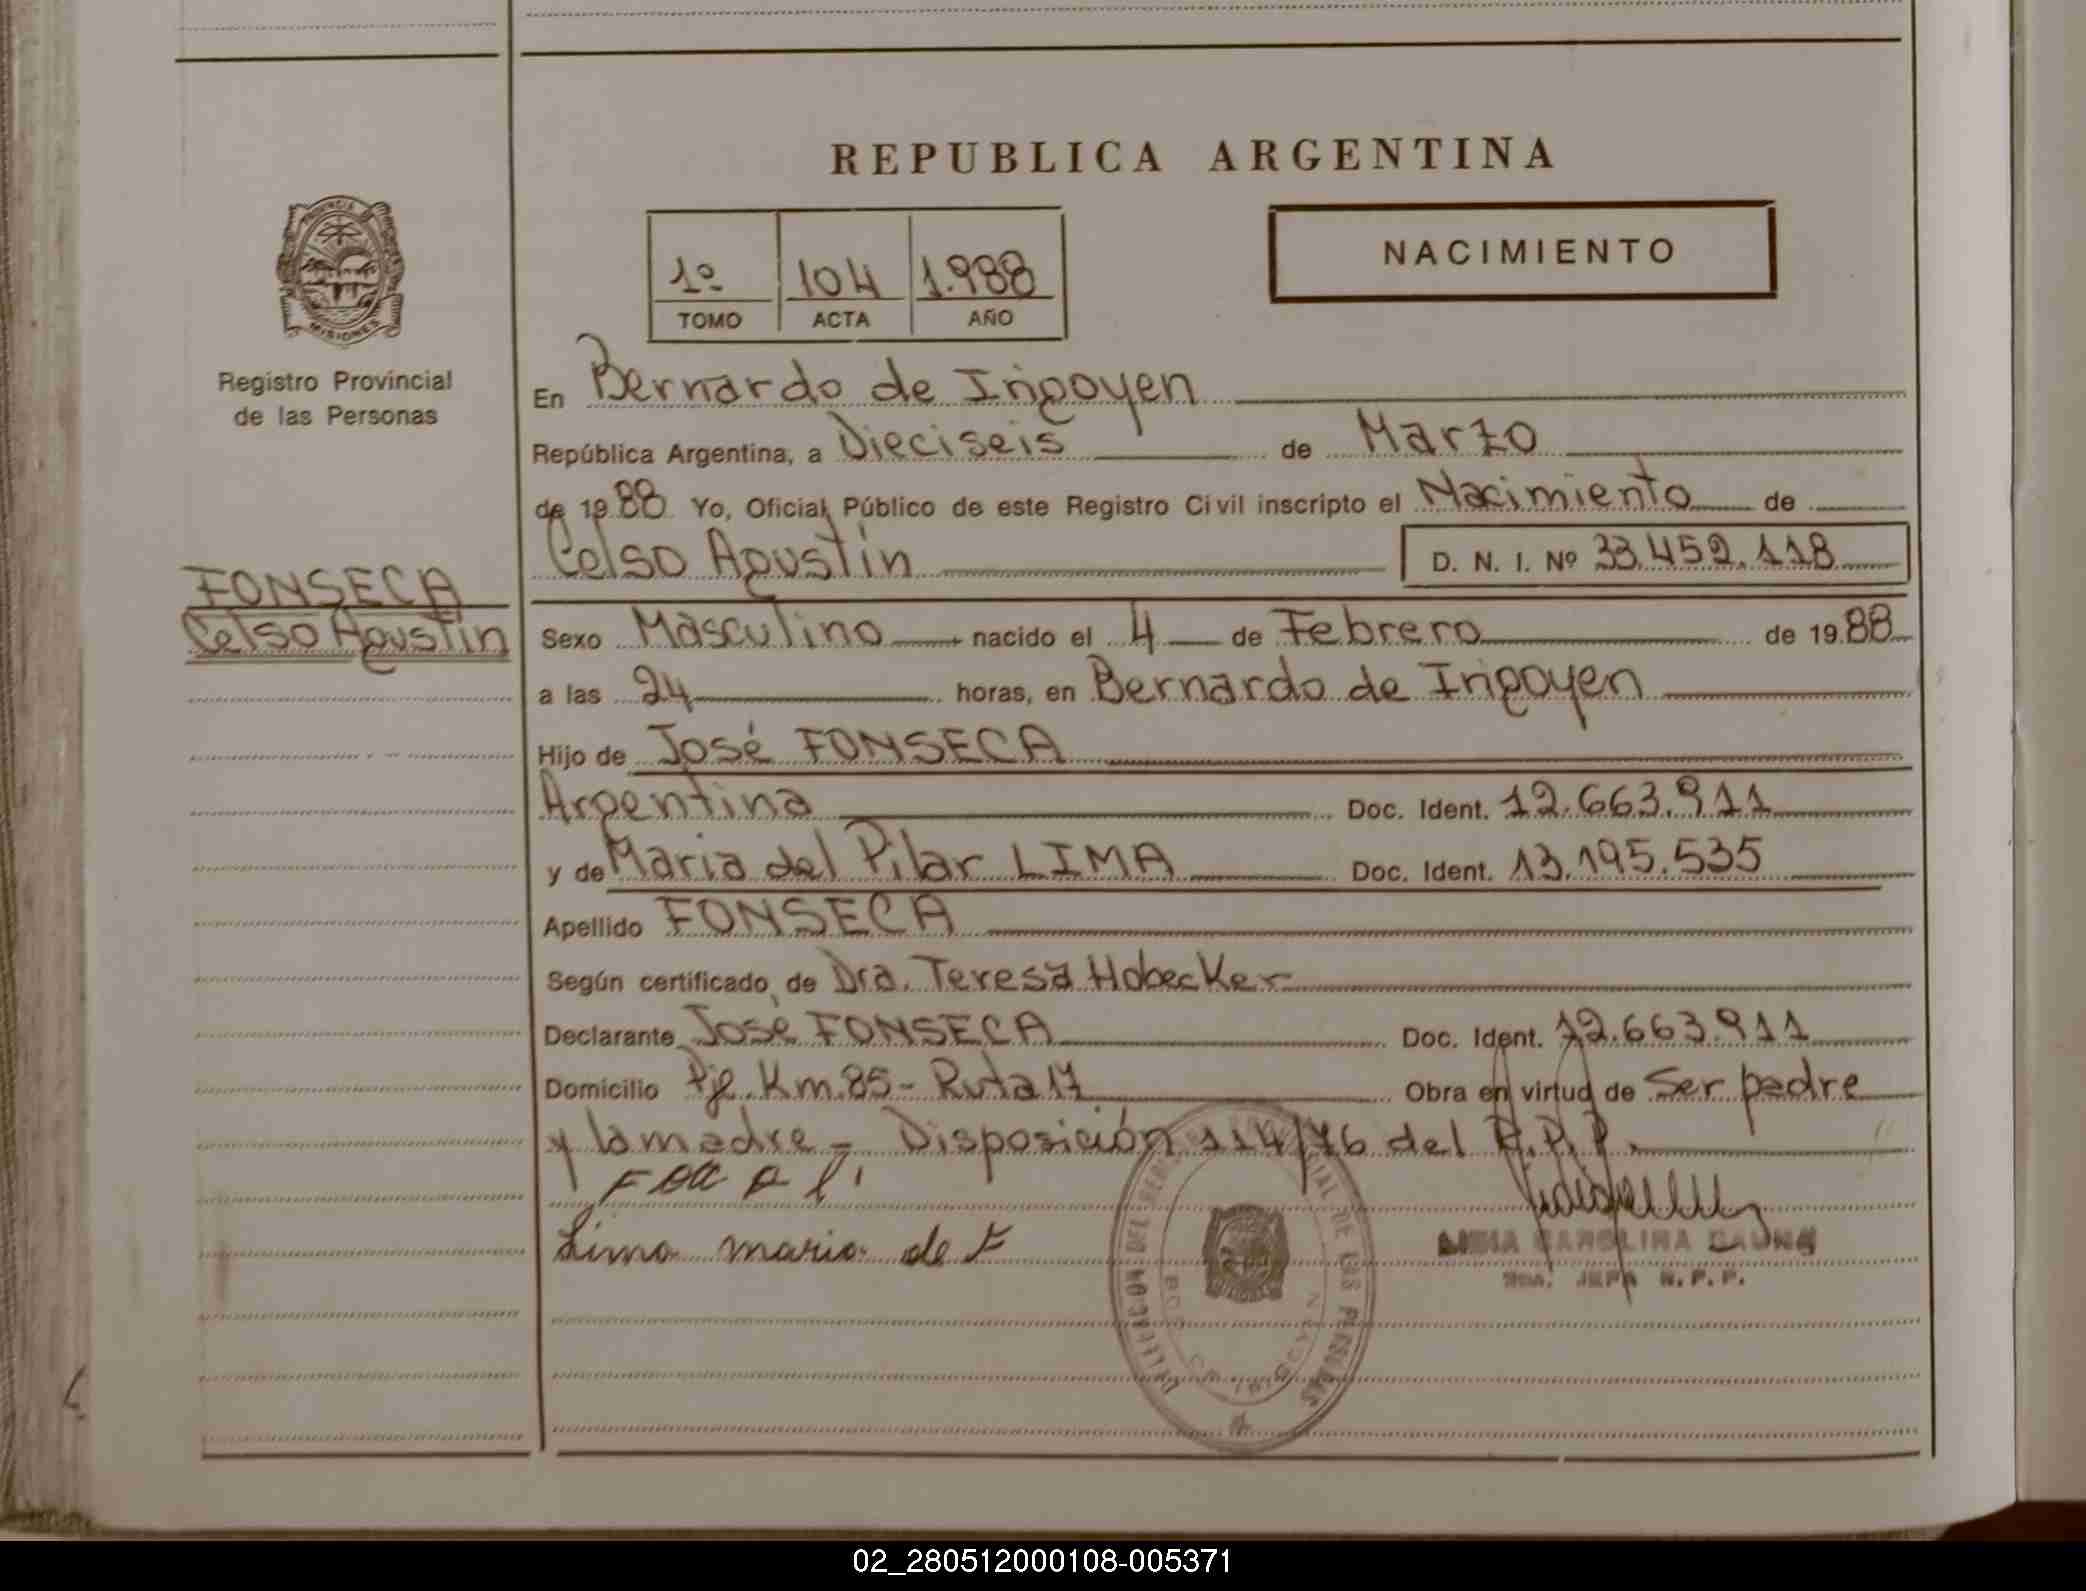 REPUBLICA ARGENTINA
NACIMIENTO
1º 104 1.988
TOMO ACTA AÑO
PROVINCIA
MISIONES
Registro Provincial
de las Personas
FONSECA
Celso Agustín
En Bernardo de Irigoyen
República Argentina, a Dieciseis de Marzo
de 1988 Yo, Oficial Público de este Registro Civil inscripto el Nacimiento de
Celso Agustín D. N. I. Nº 33.452.118
Sexo Masculino nacido el 4 de Febrero de 1988
a las 24 horas, en Bernardo de Irigoyen
Hijo de José FONSECA
Argentina Doc. Ident. 12.663.911
y de Maria del Pilar LIMA Doc. Ident. 13.195.535
Apellido FONSECA
Según certificado de Dra. Teresa Hobecker
Declarante José FONSECA Doc. Ident. 12.663.911
Domicilio Pje. Km.85 - Ruta 17 Obra en virtud de Ser padre
y la madre - Disposición 114/76 del R.P.P.
Lima maria de F
CAROLINA
JEFA R.P.P.
DE LAS PERSONAS
02_280512000108-005371